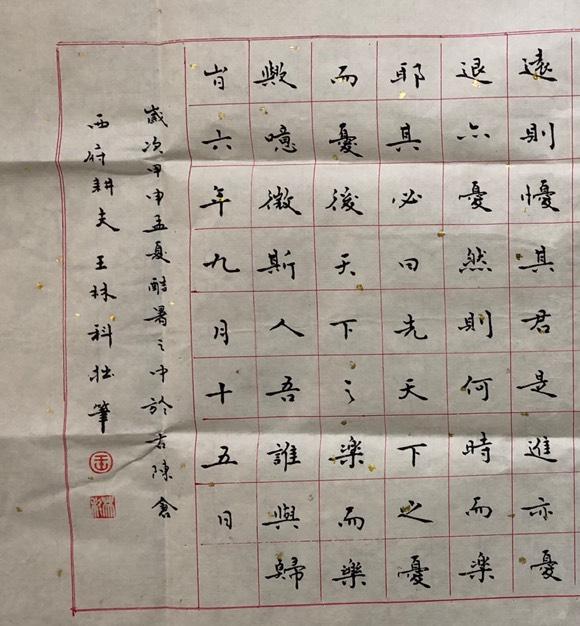 遠則懮其君是進亦憂
退亦憂然則何時而樂
耶其必曰先天下之憂
而憂後天下之樂而樂
歟噫微斯人吾誰與歸
旹六年九月十五日
歲次甲申孟夏酷暑之中於古陳倉
西府耕夫王林科拙筆
王